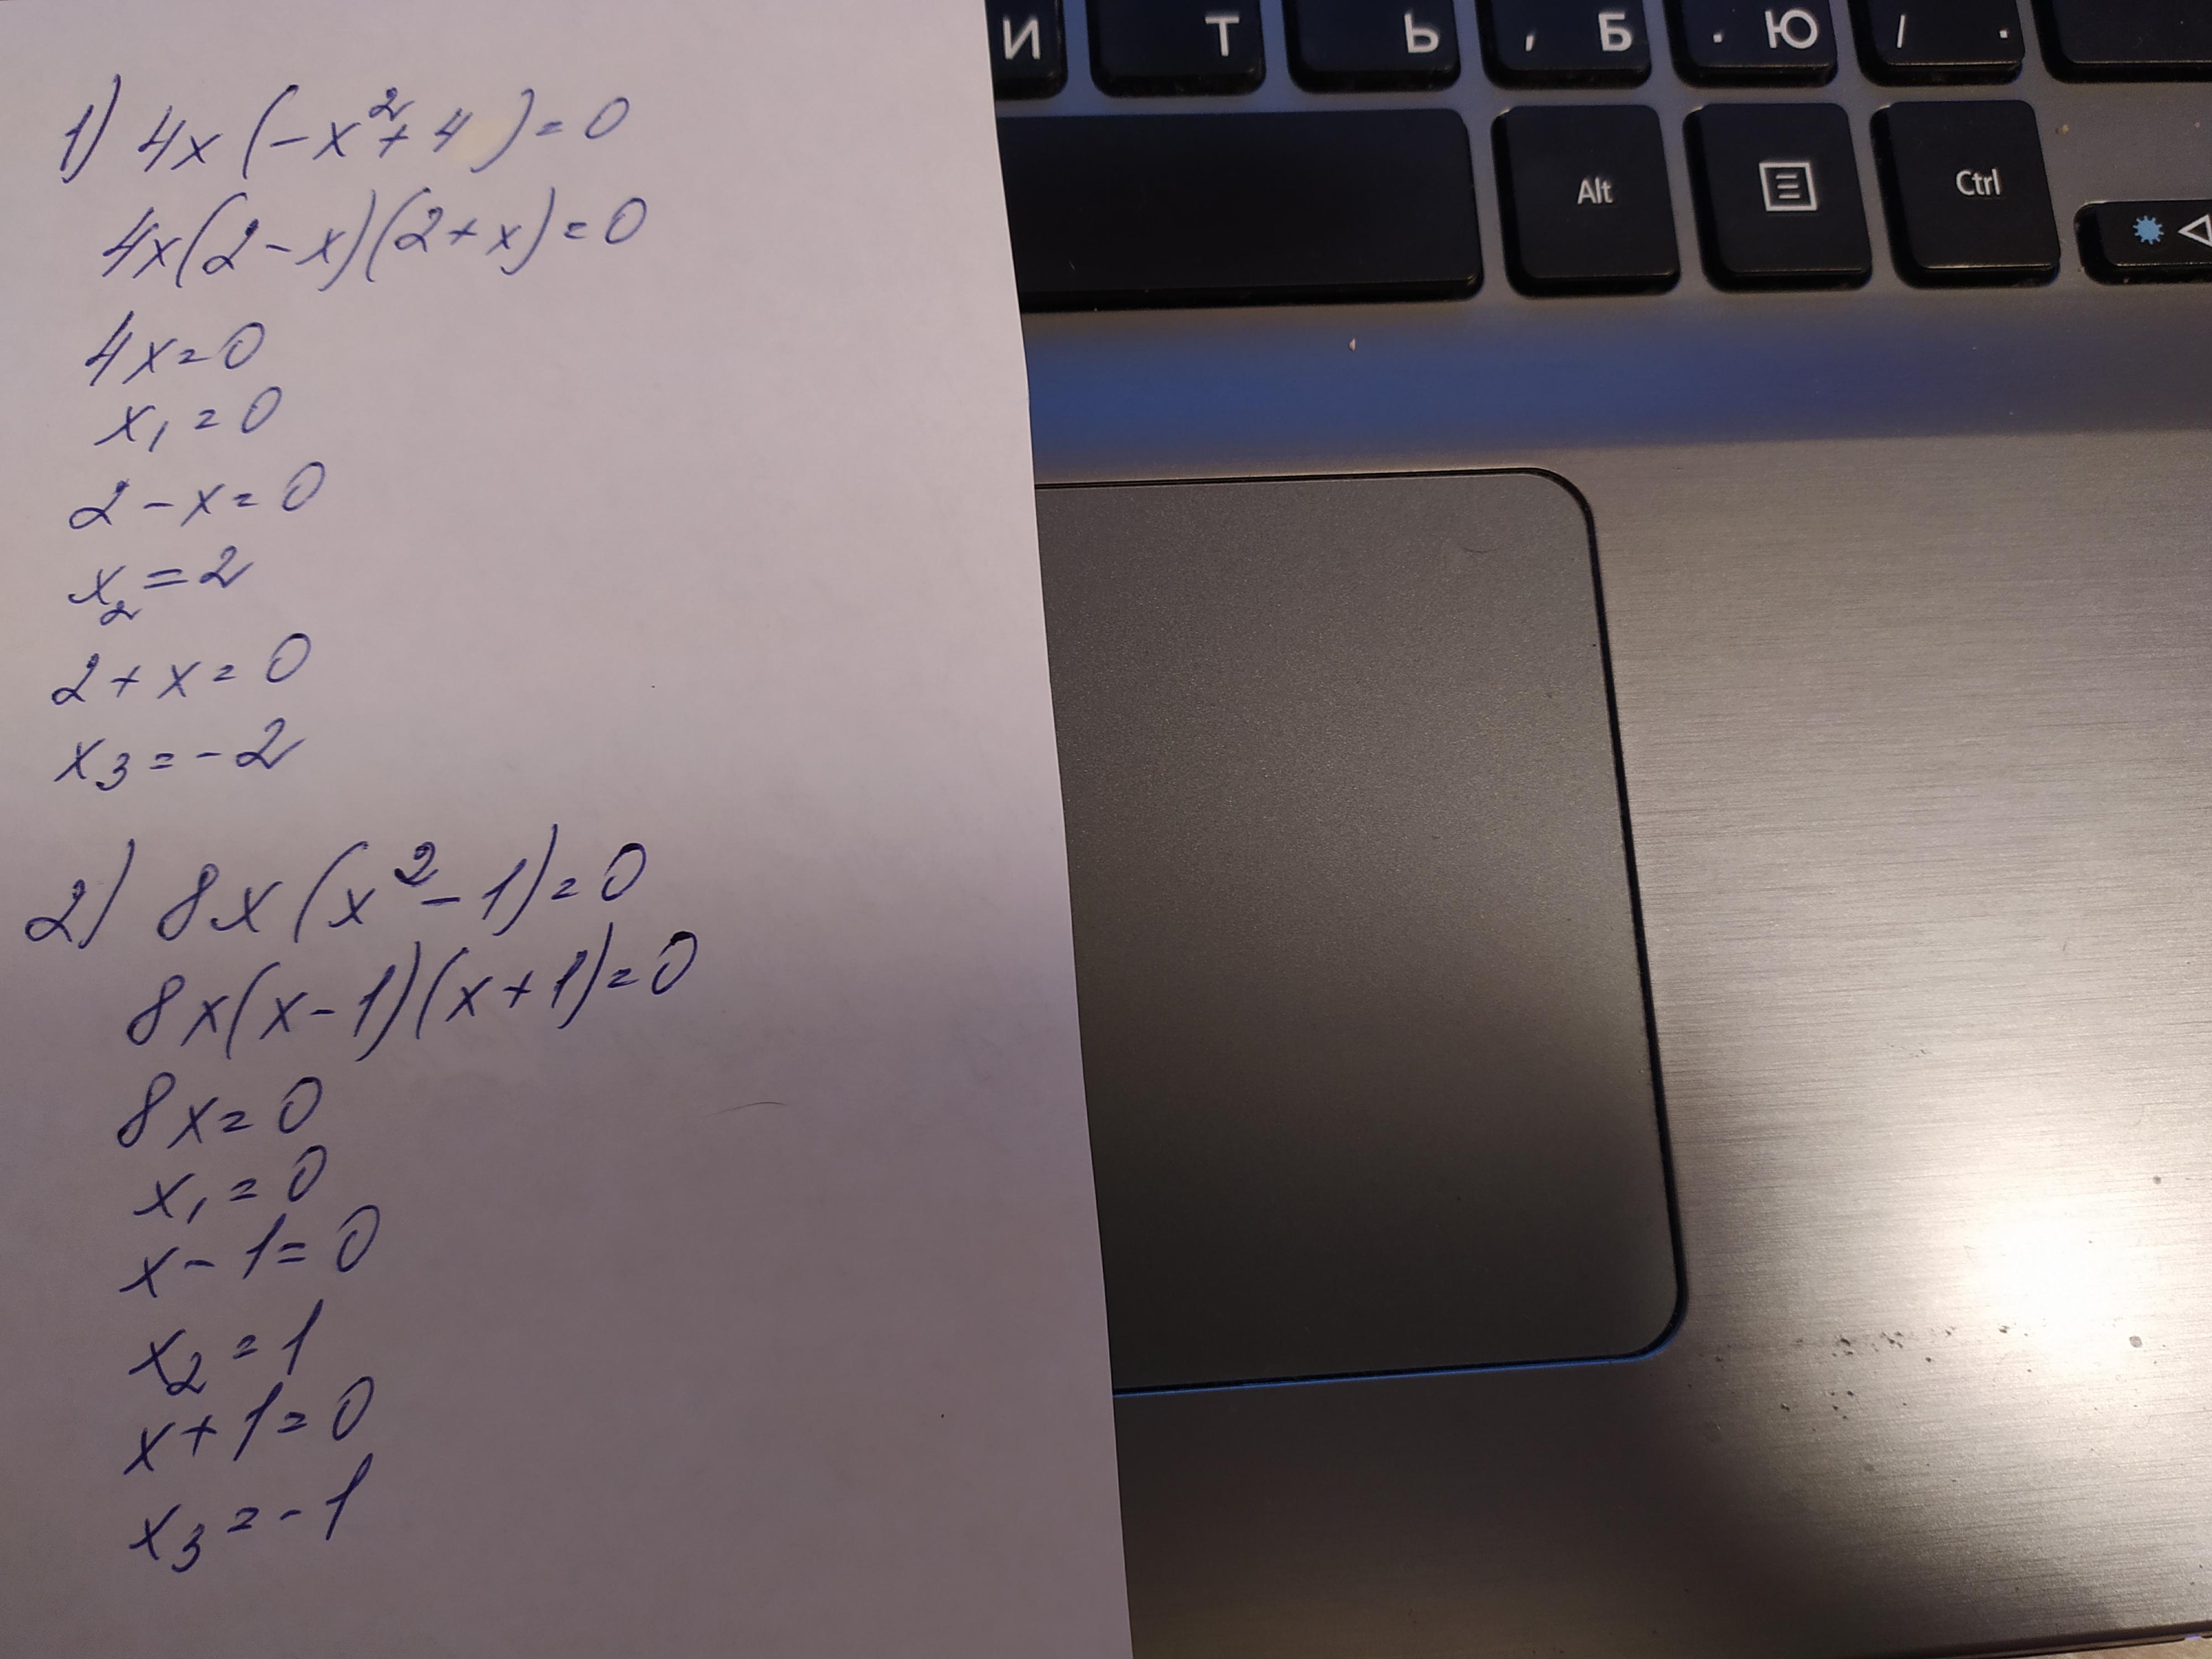 1) 4x(-x²+4)=0
4x(2-x)(2+x)=0
4x=0
x₁=0
2-x=0
x₂=2
2+x=0
x₃=-2
2) 8x(x²-1)=0
8x(x-1)(x+1)=0
8x=0
x₁=0
x-1=0
x₂=1
x+1=0
x₃=-1
И Т Ь , Б . Ю / .
Alt Ctrl